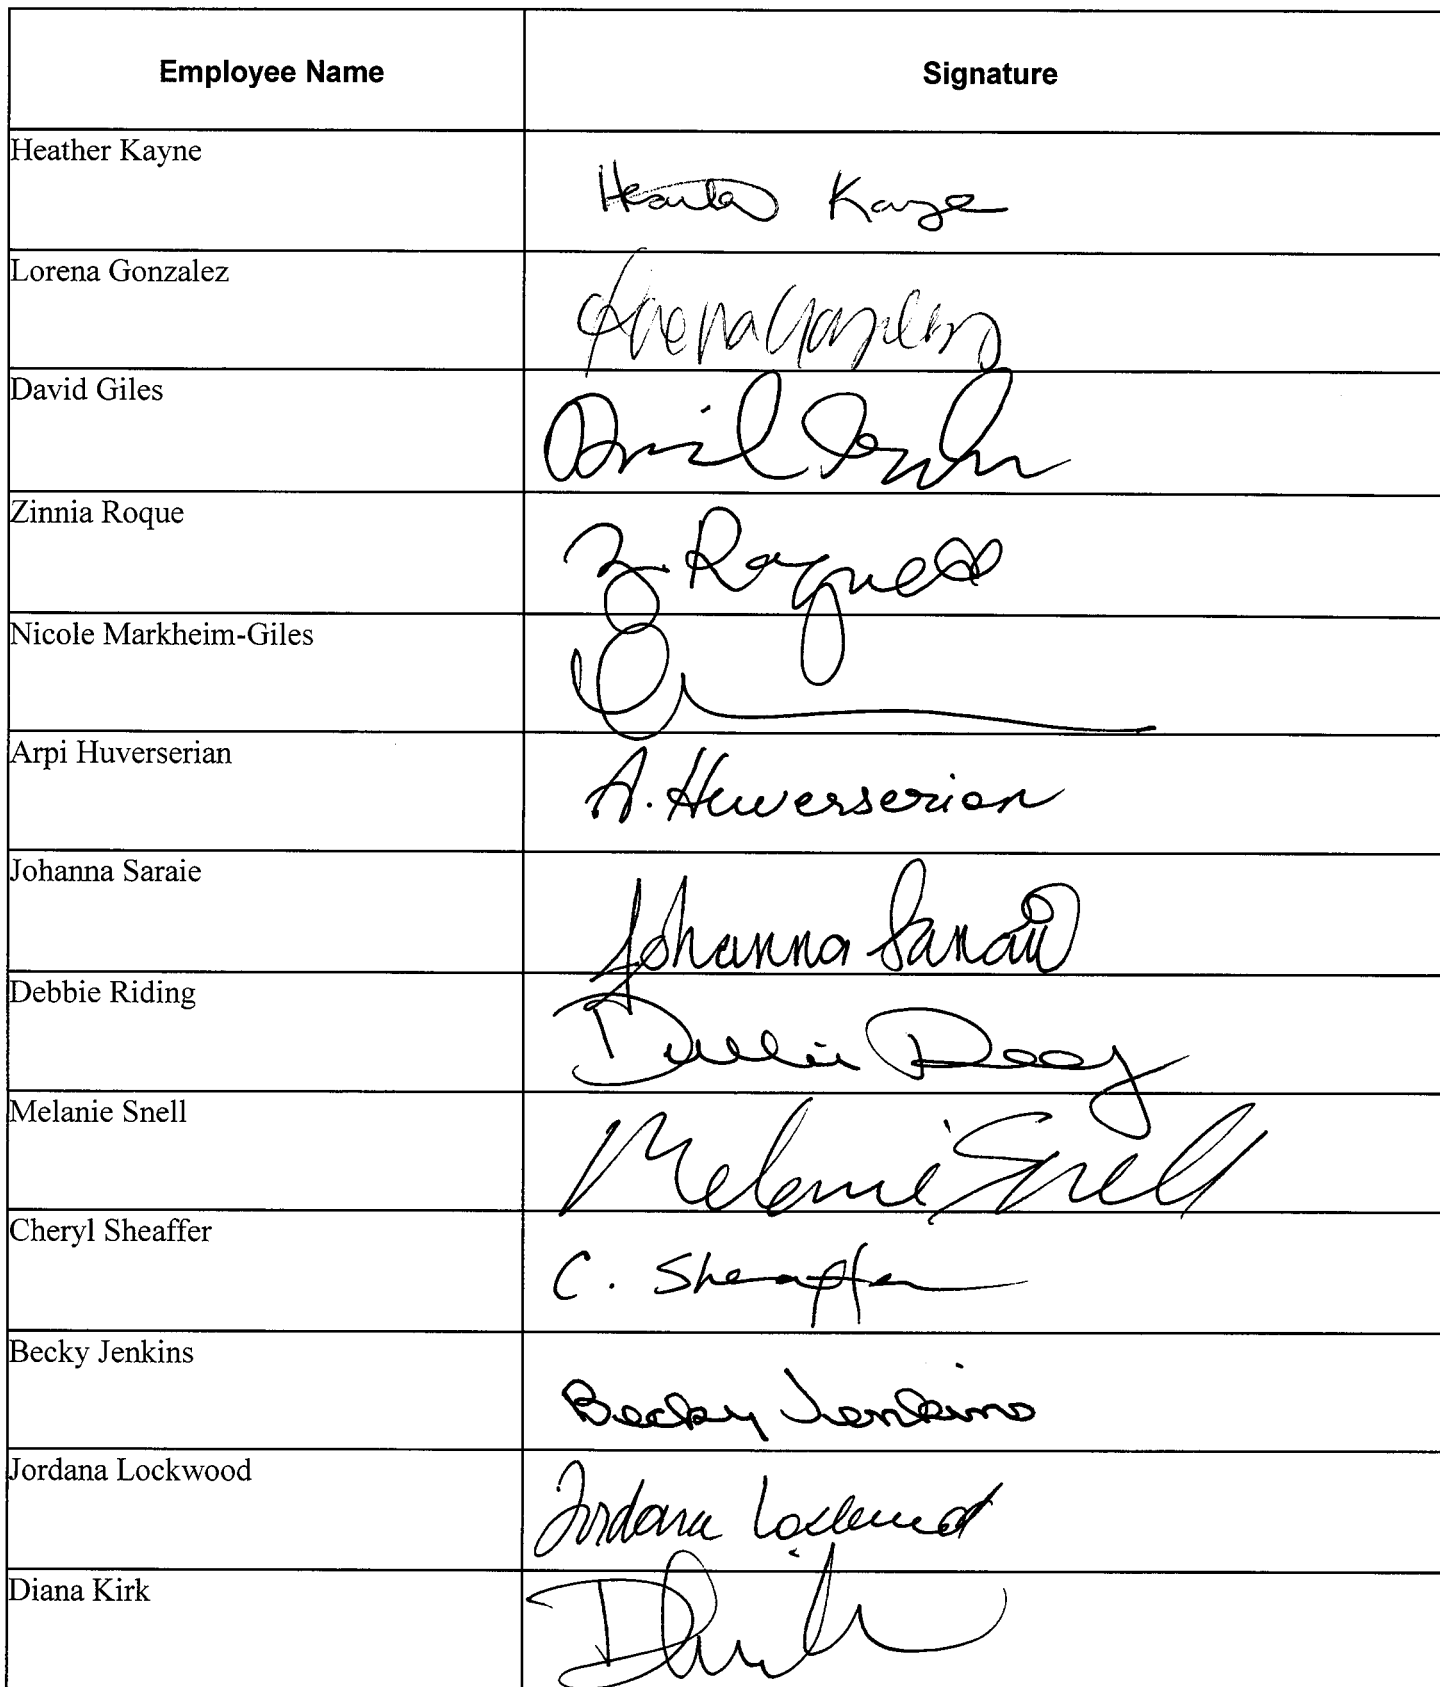 Employee Name Signature
Heather Kayne
Heather Kayne
Lorena Gonzalez
Lorena Gonzalez
David Giles
David
Zinnia Roque
Z. Roque
Nicole Markheim-Giles
Arpi Huverserian
A. Huverserian
Johanna Saraie
Johanna Saraie
Debbie Riding
Debbie
Melanie Snell
Melanie Snell
Cheryl Sheaffer
C. Sheaffer
Becky Jenkins
Becky Jenkins
Jordana Lockwood
Jordana Lockwood
Diana Kirk